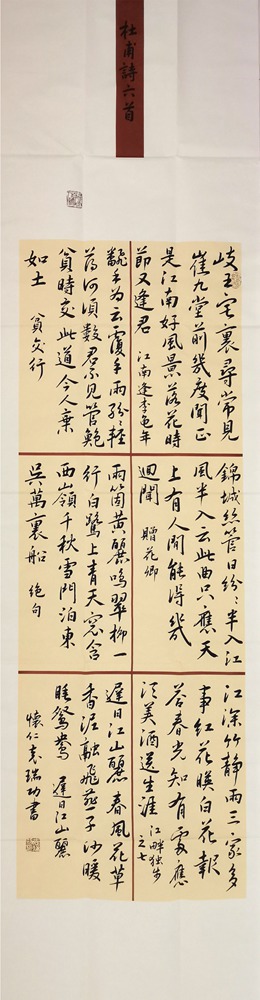 杜甫詩六首
岐王宅裏尋常見
崔九堂前幾度聞正
是江南好風景落花時
節又逢君 江南逢李龜年
翻手为云覆手雨紛〻輕
薄何須數君不見管鮑
貧時交此道今人棄
如土 貧交行
錦城絲管日紛〻半入江
風半入云此曲只應天
上有人間能得幾
迴聞 贈花卿
兩箇黃鸝鳴翠柳一
行白鷺上青天窓含
西嶺千秋雪門泊東
吳萬裏船 絕句
江深竹靜兩三家多
事紅花暎白花報
答春光知有處應
須美酒送生涯 江畔独步
之七
遲日江山麗春風花草
香泥融飛燕子沙暖
睡鴛鴦 遲日江山麗
懷仁袁瑞功書